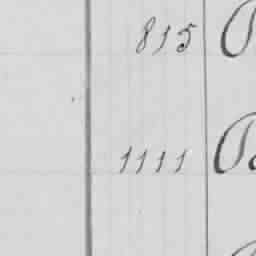 815
1111